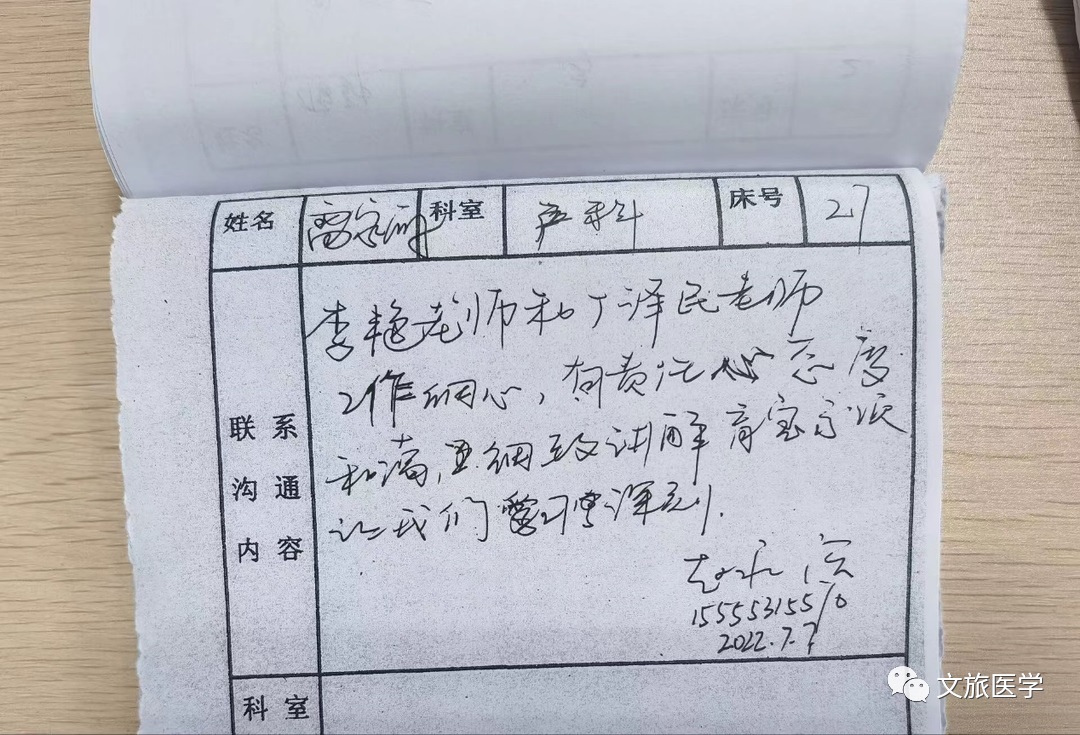 姓名 科室 产科 床号 27
李艳老师和丁泽民老师
工作细心，有责任心态度
和蔼，且细致讲解育宝事项
让我们学习深刻.
赵永
15555315510
2022.7.7
联系
沟通
内容
科室
文旅医学